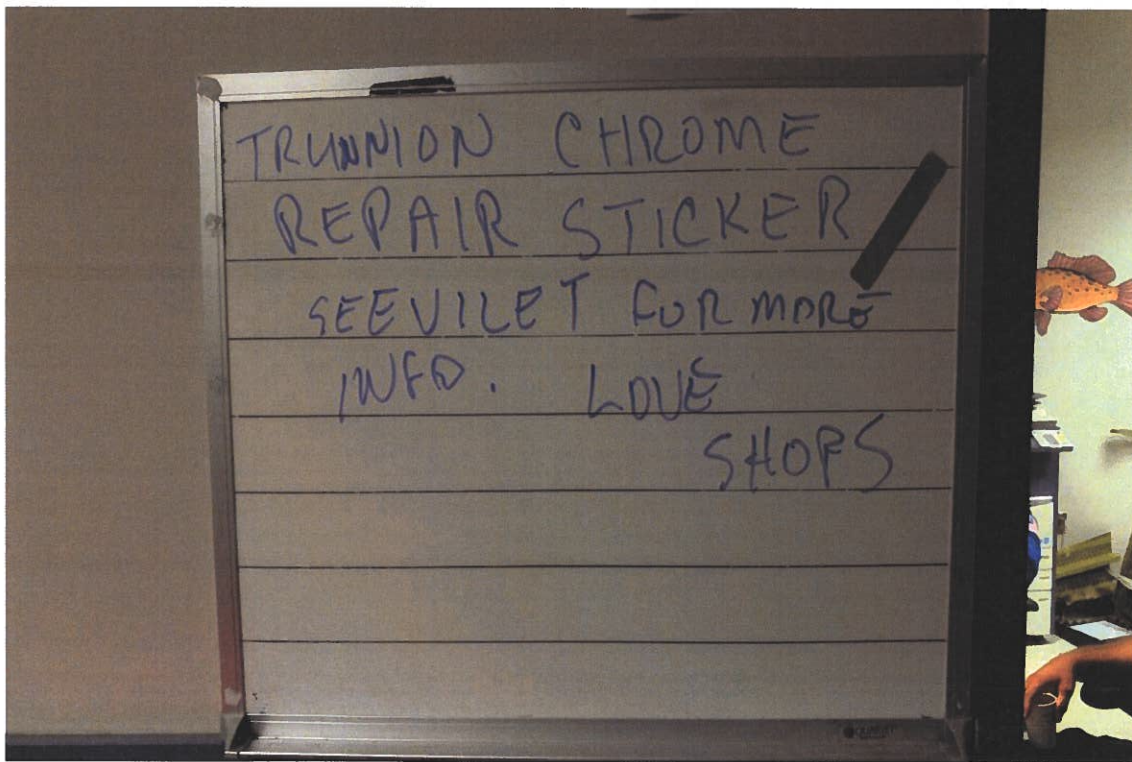 TRUNNION CHROME
REPAIR STICKER
SEE VILET FOR MORE
INFO. LOVE
SHOPS